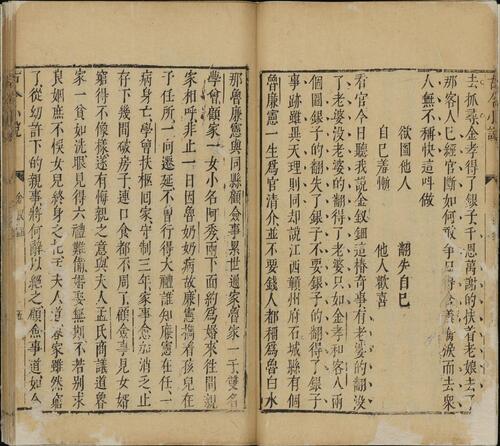 去抓尋金孝得了銀子千恩萬謝的扶着老娘去了
那客人已經官斷如何敢爭只得含羞噙淚而去衆
人無不稱快這呌做
欲圖他人　翻失自已
自已羞慚　他人歡喜
看官今日聽我說金釵鈿這樁奇事有老婆的翻沒
了老婆沒老婆的翻得了老婆只如金孝和客人兩
個圖銀子的翻失了銀子不要銀子的翻得了銀子
事跡雖異天理則同却說江西贛州府石城縣有個
魯廉憲一生爲官清介並不要錢人都稱爲魯白水
那魯廉憲與同縣顧僉事累世通家魯家一子雙名
學曾顧家一女小名阿秀兩下面約爲婚來往間親
家相呼非止一日因魯奶奶病故廉憲攜着孩兒在
于任所一向遷延不曾行得大禮誰知廉憲在任一
病身亡學曾扶柩回家守制三年家事愈加消乏止
存下幾間破房子連口食都不周了顧僉事見女婿
窮得不像樣遂有悔親之意與夫人孟氏商議道魯
家一貧如洗眼見得六禮難備婚娶無期不若別求
良姻庶不悞女兒終身之托孟夫人道魯家雖然窮
了從幼許下的親事將何辭以絕之顧僉事道如今
古今小說